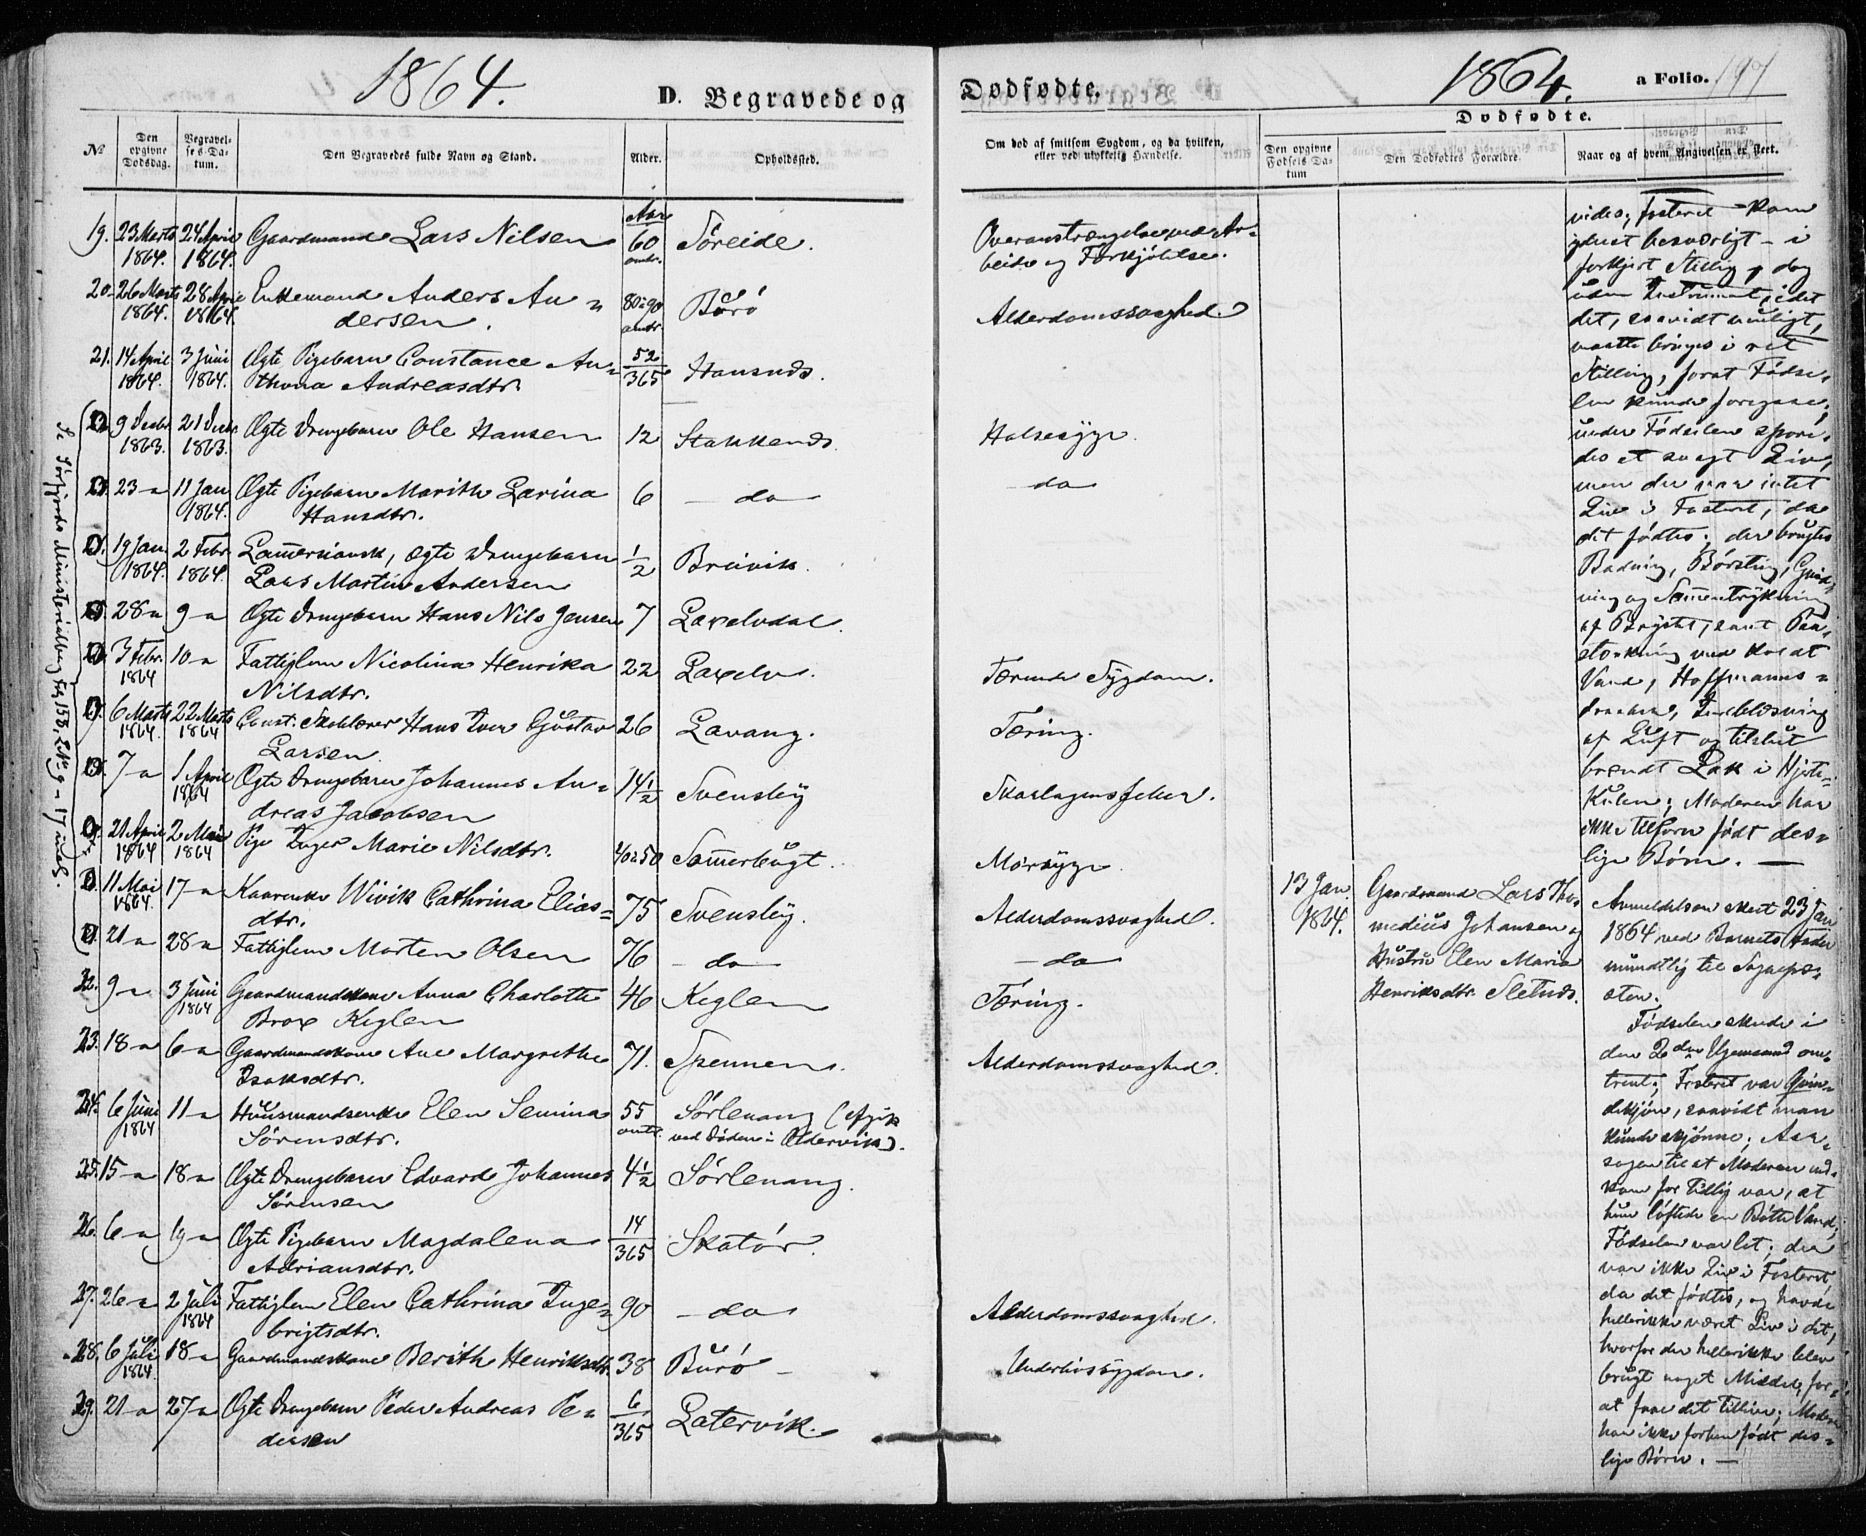 1864.
D. Begravede og
Dødfødte.
1864.
a Folio. 197
Dødfødte.
No
Den opgivne Dødsdag.
Begravelses-Datum.
Den Begravedes fulde Navn og Stand.
Alder.
Opholdssted.
Om død af smitsom Sygdom, og da hvilken, eller ved ulykkelig Hændelse.
Den opgivne Fødsels Datum
Den Dødfødtes Forældre.
Naar og af hvem Angivelsen er skeet.
19. 23 Marts 1864. 24 April 1864. Gaardmand Lars Nilsen Aar 60 omtr. Søreide. Overanstrængelse ved Ar-
beide og Forkjølelse.
20. 26 Marts 1864. 28 April 1864. Enkemand Anders An-
dersen. 80 a 90 omtr. Burø Alderdomssvaghed.
21. 14 April 1864. 3 Juni 1864. Ægte Pigebarn Constance An-
thona Andreasdtr. 52/365 Hansnds.
9 Decbr 1863. 21 Decbr. 1863. Ægte Drengebarn Ole Hansen 12 Stakkends. Halsesyge.
23 - 11 Jan 1864. Ægte Pigebarn Marith Larina
Hansdtr. 6 - do - do
19 Jan. 1864. 2 Febr. 1864. Ægte Drengebarn
Lars Martin Andersen 1/2 Breivik.
28 - 9 - Ægte Drengebarn Hans Nils Jensen 7 Laxelvdal.
3 Febr. 1864 10 - Fattiglem Nicolina Henrika
Nilsdtr. 22 Laxelv. Tærende Sygdom.
6 Marts 1864. 22 Marts 1864 Const. Skolelærer Hans Iver Gustav
Larsen. 26 Lavang. Tæring.
7 - 1 April 1864 Ægte Drengebarn Johannes An-
dreas Jacobsen 14 1/2 Svensby Skarlagensfeber.
21 April 1864 2 Mai 1864 Pige Inger Marie Nilsdtr. 40 a 50 Sommerbugt. Morsyge
11 Mai 1864. 17 - Kaarenke Wivik Cathrina Elias-
dtr. 75 Svensby. Alderdomssvaghed.
21 - 28 - Fattiglem Morten Olsen 76 - do - do
22. 9 - 3 Juni 1864 Gaardmandskone Anna Charlotte
Brox Keglen 46 Keglen Tæring.
23. 18 - 6 - Gaardmandskone Ane Margrethe
Isaksdtr. 71. Spennen. Alderdomssvaghed.
24. 6 Juni 1864 11 - Huusmandsenke Elen Semina
Sørensdtr. 55 omtr. Sørlenang (afgik
ved Døden i Oldervik).
25. 15 - 18 - Ægte Drengebarn Edvard Johannes
Sørensen 4 1/2 Sørlenang.
26. 6 - 19 - Ægte Pigebarn Magdalena
Adriansdtr. 14/365 Skatør.
27. 26 - 2 Juli 1864 Fattiglem Elen Cathrina Inge-
brigtsdtr. 90 - do Alderdomssvaghed.
28. 6 Juli 1864. 18 - Gaardmandskone Berith Henriksdtr. 38 Burø - Underlivssygdom.
29. 21 - 27 - Ægte Drengebarn Peder Andreas Pe-
dersen 6/365 Latervik.
Se Sørfjords Ministerialbog Fol. 158, No 9 - 17 incl.
video; fosteret kom
ydest besværligt - i
forkjert Stilling, dog
uden Instrument, idet
det, saavidt muligt,
maatte bringes i ret
Stilling, forat Fødse-
len kunde foregaae;
under Fødselen spore-
des et svagt Liv,
men der var intet
Liv i Fosteret, da
det fødtes; der brugtes
Badning, Børsting, Gnid-
ning og Sammentrykning
af Brystet, samt Paa-
stænkning med koldt
Vand, Hoffmanns-
draaber, Indblæsning
af Luft og tilsidst
brændt Lak i Hjerte-
kulen; Moderen har
ikke tilforn født des-
lige Børn. -
13 Jan. 1864.
Gaardmand Lars Tho-
medius Johansen og
Hustru Elen Maria
Henriksdtr. Sletnds.
Anmeldelsen skeet 23 Jan
1864 ved Barnets Fader
mundtlig til Sognepræ-
sten.
Fødselen skede i
den 2den Ugemaand om-
trent; Fosteret var Qvin-
dekjøn, saavidt man
kunde skjønne; Aar-
sagen til at Moderen ned-
kom for tidlig var, at
hun løftede en Bøtte Vand;
Fødselen var let; der
var ikke Liv i Fosteret,
da det fødtes, og havde
heller ikke været Liv i det,
hvorfor der heller ikke blev
brugt noget Middel, for
at faae det tillive; Moderen
har ikke forhen født des-
lige Børn. -